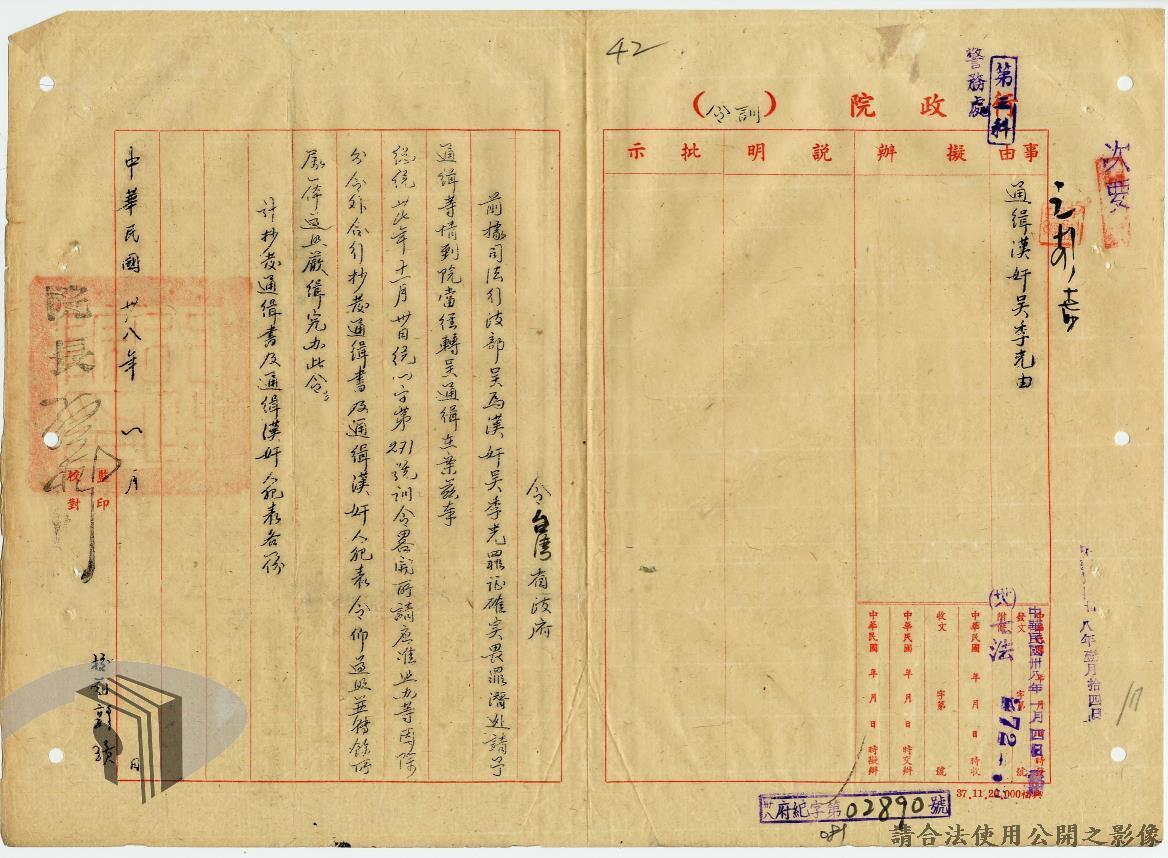 42
行政院（訓令）
警務處
第二科
次要
事由
擬辦
說明
批示
通缉漢奸吴季光由
令台灣省政府
前據司法行政部呈為漢奸吴季光罪证確实畏罪潛逃請予
通缉等情到院當經轉呈通缉在案兹奉
總統卅七年十一月卅日統(一)字第271號訓令畧開所請應准照办等因除
分令外合行抄發通缉書及通缉漢奸人犯表令仰遵照並轉飭所
屬一体遵照嚴缉究办此令
計抄發通缉書及通缉漢奸人犯表各一份
中華民國卅八年一月
日
院長
監印
校對
中華民國卅八年一月四日
發文
附件
字第
號
(卅)七法
272
中華民國 年 月 日 時收
收文 字第 號
中華民國 年 月 日 時交辦
中華民國 年 月 日 時擬辦
八年壹月拾四日
37.11.20,000
卅八府紀字第02890號
081
請合法使用公開之影像